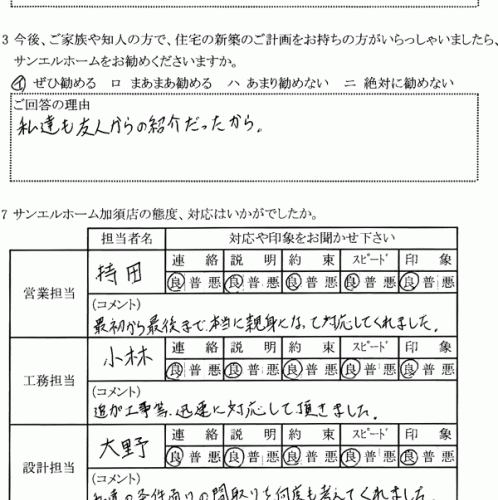 3 今後、ご家族や知人の方で、住宅の新築のご計画をお持ちの方がいらっしゃいましたら、
サンエルホームをお勧めくださいますか。
イ ぜひ勧める ロ まあまあ勧める ハ あまり勧めない ニ 絶対に勧めない
ご回答の理由
私達も友人からの紹介だったから。
7 サンエルホーム加須店の態度、対応はいかがでしたか。
担当者名 対応や印象をお聞かせ下さい
営業担当 持田 連絡 説明 約束 スピード 印象
良 普 悪 良 普 悪 良 普 悪 良 普 悪 良 普 悪
(コメント)
最初から最後まで、本当に親身になって対応してくれました。
工務担当 小林 連絡 説明 約束 スピード 印象
良 普 悪 良 普 悪 良 普 悪 良 普 悪 良 普 悪
(コメント)
追加工事等、迅速に対応して頂きました。
設計担当 大野 連絡 説明 約束 スピード 印象
良 普 悪 良 普 悪 良 普 悪 良 普 悪 良 普 悪
(コメント)
私達の条件通りの間取りを何度も考えてくれました